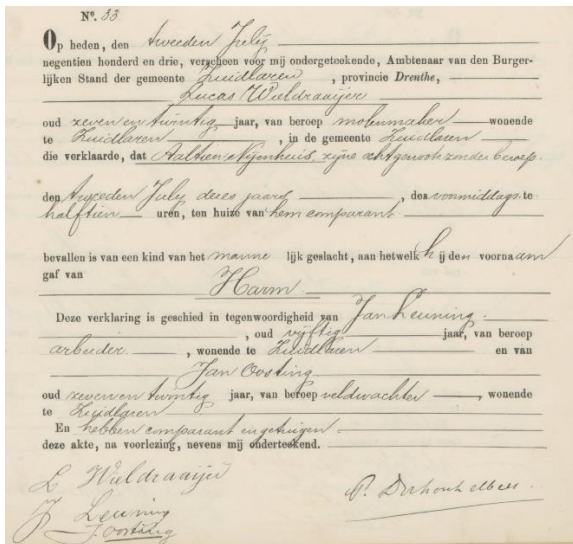 No. 33
Op heden, den tweeden July
negentien honderd en drie, verscheen voor mij ondergeteekende, Ambtenaar van den Burger-
lijken Stand der gemeente Zuidlaren, provincie Drenthe,
Lucas Wieldraaijer
oud zeven en twintig jaar, van beroep molenmaker wonende
te Zuidlaren, in de gemeente Zuidlaren
die verklaarde, dat Aaltien Nijenhuis, zijne echtgenoote zonder beroep
den tweeden July dezes jaars, des voormiddags te
halftien uren, ten huize van hem comparant
bevallen is van een kind van het manne lijk geslacht, aan hetwelk h ij den voornaam
gaf van
Harm
Deze verklaring is geschied in tegenwoordigheid van Jan Leuning
, oud vijftig jaar, van beroep
arbeider, wonende te Zuidlaren en van
Jan Oosting
oud zeven en twintig jaar, van beroep veldwachter, wonende
te Zuidlaren
En hebben comparant en getuigen
deze akte, na voorlezing, nevens mij onderteekend.
L Wieldraaijer
J Leuning
J. Oosting